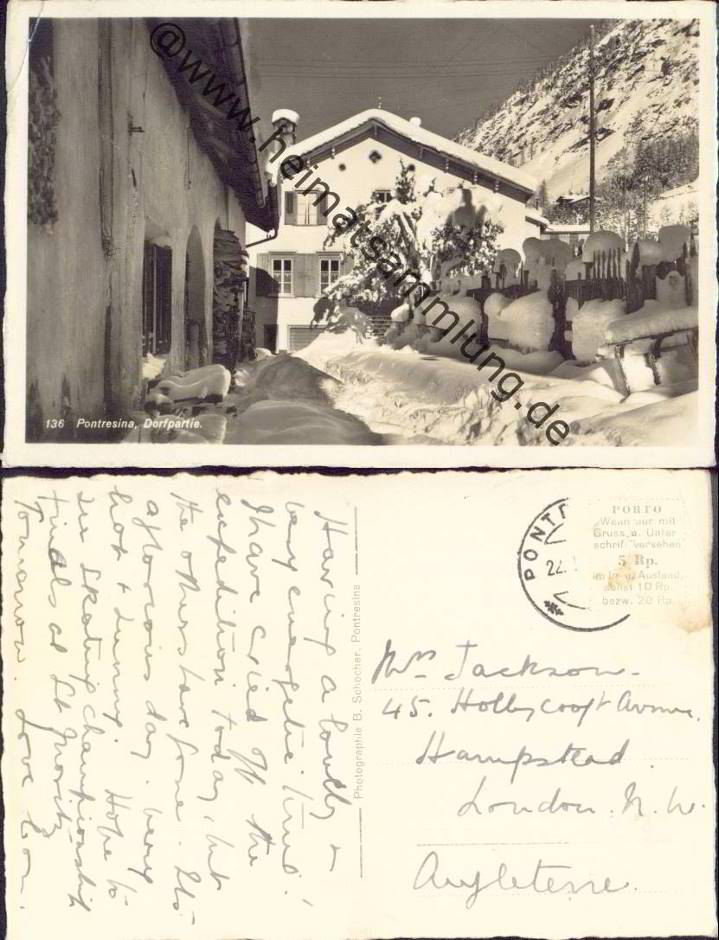 @www.heimatsammlung.de
136 Pontresina, Dorfpartie.
Having a lovely &
very energetic time!
I have cried off the
expedition today, but
the others have gone. Its
a glorious day. very
hot & sunny. Hope to
see skating championship
finals at St Moritz
Tomorrow. Love
Photographie B. Schocher, Pontresina
PONTRE
22.
PORTO
Wenn nur mit
Gruss u. Unter-
schrift versehen
5 Rp.
Ausland,
sonst 10 Rp.
bezw. 20 Rp.
Mrs Jackson.
45. Hollycroft Avenue.
Hampstead.
London. N.W.
Angleterre.